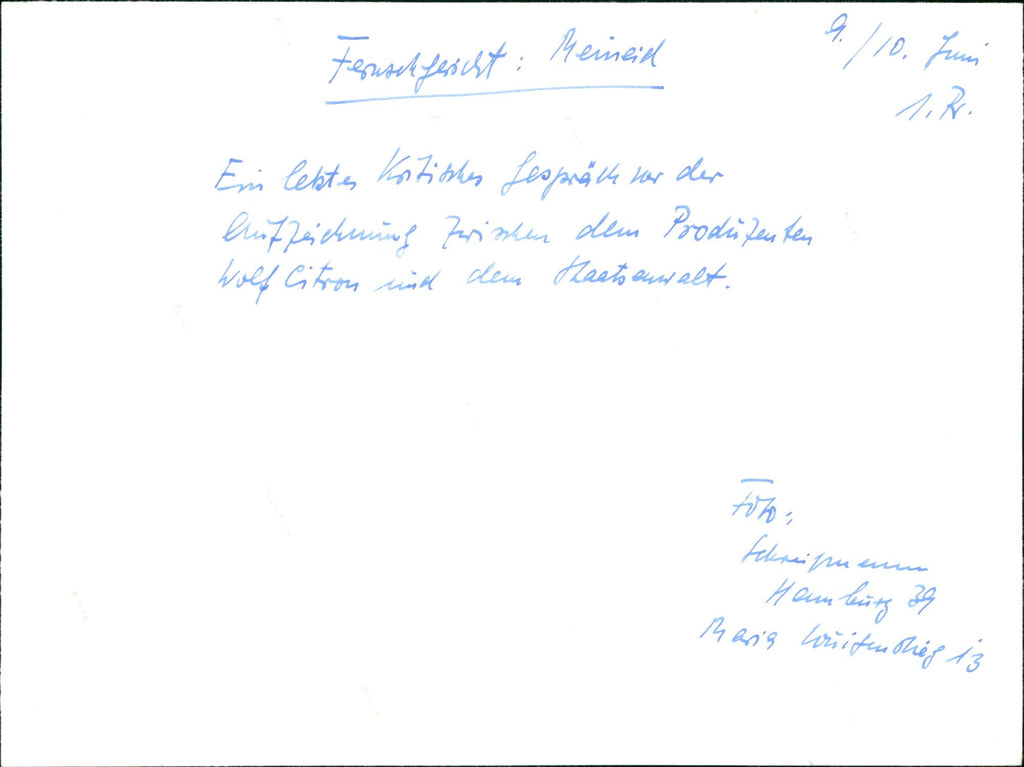 Fernsehgericht: Meineid
9./10. Juni
1. Pr.
Ein letztes kritisches Gespräch vor der
Aufzeichnung zwischen dem Produzenten
Wolf Citron und dem Staatsanwalt.
Foto:
Hamburg 39
Maria Louisenstieg 13